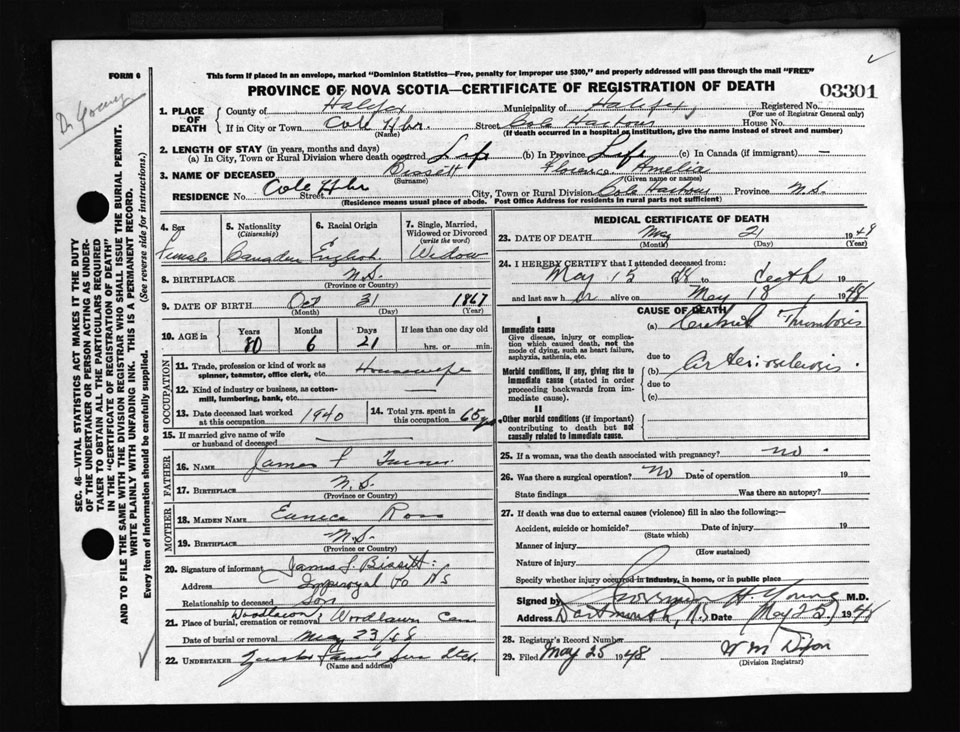 FORM 6
This form if placed in an envelope, marked "Dominion Statistics—Free, penalty for improper use $300," and properly addressed will pass through the mail "FREE"
PROVINCE OF NOVA SCOTIA—CERTIFICATE OF REGISTRATION OF DEATH
03301
Dr Young
1. PLACE OF DEATH
County of Halifax Municipality of Halifax Registered No.
(For use of Registrar General only)
If in City or Town Cole Hbr. Street Cole Harbour House No.
(Name) (If death occurred in a hospital or institution, give the name instead of street and number)
2. LENGTH OF STAY (in years, months and days)
(a) In City, Town or Rural Division where death occurred Life (b) In Province Life (c) In Canada (if immigrant) —
3. NAME OF DECEASED Bissett Florence Amelia
(Surname) (Given name or names)
RESIDENCE No. Cole Hbr Street City, Town or Rural Division Cole Harbour Province N.S.
(Residence means usual place of abode. Post Office Address for residents in rural parts not sufficient)
SEC. 46—VITAL STATISTICS ACT MAKES IT THE DUTY
OF THE UNDERTAKER OR PERSON ACTING AS UNDER-
TAKER TO OBTAIN ALL THE PARTICULARS REQUIRED
IN THE "CERTIFICATE OF REGISTRATION OF DEATH"
AND TO FILE THE SAME WITH THE DIVISION REGISTRAR WHO SHALL ISSUE THE BURIAL PERMIT.
WRITE PLAINLY WITH UNFADING INK. THIS IS A PERMANENT RECORD.
Every item of information should be carefully supplied. (See reverse side for instructions.)
4. Sex 5. Nationality 6. Racial Origin 7. Single, Married,
(Citizenship) Widowed or Divorced
(write the word)
Female Canadian English Widow
8. BIRTHPLACE N.S.
(Province or Country)
9. DATE OF BIRTH Oct 31 1867
(Month) (Day) (Year)
10. AGE in Years Months Days If less than one day old
80 6 21 hrs. or min.
OCCUPATION
11. Trade, profession or kind of work as Housewife
spinner, teamster, office clerk, etc.
12. Kind of industry or business, as cotton-
mill, lumbering, bank, etc.
13. Date deceased last worked at this occupation 1940 14. Total yrs. spent in this occupation 65 yrs.
15. If married give name of wife
or husband of deceased
FATHER
16. NAME James Turner
17. BIRTHPLACE N.S.
(Province or Country)
MOTHER
18. MAIDEN NAME Eunice Ross
19. BIRTHPLACE N.S.
(Province or Country)
20. Signature of informant James S. Bissett
Address Imperoyal Po NS
Relationship to deceased Son
21. Place of burial, cremation or removal Woodlawn Woodlawn Cem
Date of burial or removal May 23/48
22. UNDERTAKER Sons Ltd.
(Name and address)
MEDICAL CERTIFICATE OF DEATH
23. DATE OF DEATH May 21 1948
(Month) (Day) (Year)
24. I HEREBY CERTIFY that I attended deceased from:
May 15 48 to death 19
and last saw her alive on May 18, 1948
CAUSE OF DEATH
I
Immediate cause
Give disease, injury or complica-
tion which caused death, not the
mode of dying, such as heart failure,
asphyxia, asthenia, etc.
(a) Cerebral Thrombosis
due to
Morbid conditions, if any, giving rise to
immediate cause (stated in order
proceeding backwards from im-
mediate cause).
(b) Arteriosclerosis
due to
(c)
II
Other morbid conditions (if important)
contributing to death but not
causally related to immediate cause.
25. If a woman, was the death associated with pregnancy? no
26. Was there a surgical operation? no Date of operation 19
State findings Was there an autopsy?
27. If death was due to external causes (violence) fill in also the following:—
Accident, suicide or homicide? Date of injury 19
(State which)
Manner of injury
(How sustained)
Nature of injury
Specify whether injury occurred in industry, in home, or in public place
Signed by H. Young M.D.
Address Dartmouth, N.S. Date May 25, 1948
28. Registrar's Record Number
29. Filed May 25 1948 W M Dixon
(Division Registrar)